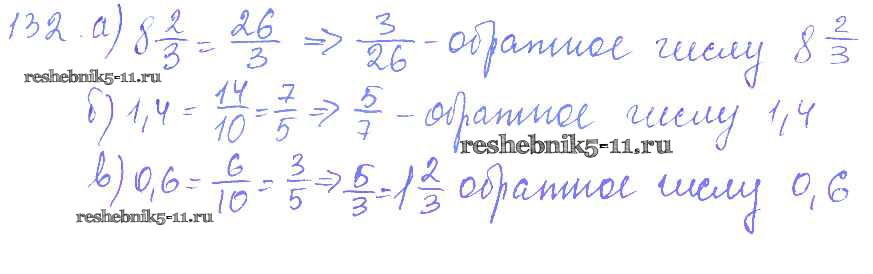 132. а) 8 2/3 = 26/3 => 3/26 - обратное числу 8 2/3
reshebnik5-11.ru
б) 1,4 = 14/10 = 7/5 => 5/7 - обратное числу 1,4
reshebnik5-11.ru
в) 0,6 = 6/10 = 3/5 => 5/3 = 1 2/3 обратное числу 0,6
reshebnik5-11.ru